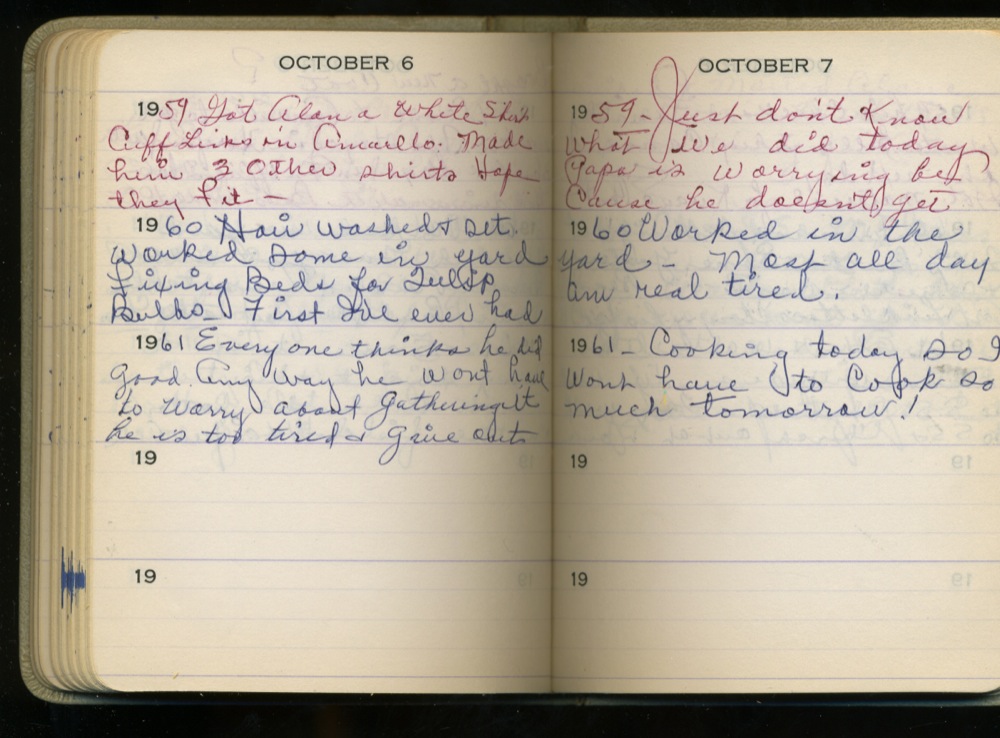 OCTOBER 6
1959 Got Alan a White Shirt
Cuff Links in Amarillo. Made
him 3 Other shirts Hope
they fit —
1960 Hair washed & set.
Worked some in yard
Fixing Beds for Tulip
Bulbs – First I've ever had
1961 Every one thinks he did
good. Any way he wont have
to worry about Gathering it
he is too tired & give out
19
19
OCTOBER 7
1959 – Just don't Know
what We did today
Papa is worrying be
Cause he doesn't get
1960 Worked in the
yard – Most all day
am real tired.
1961 – Cooking today so I
Wont have to Cook so
much tomorrow!
19
19